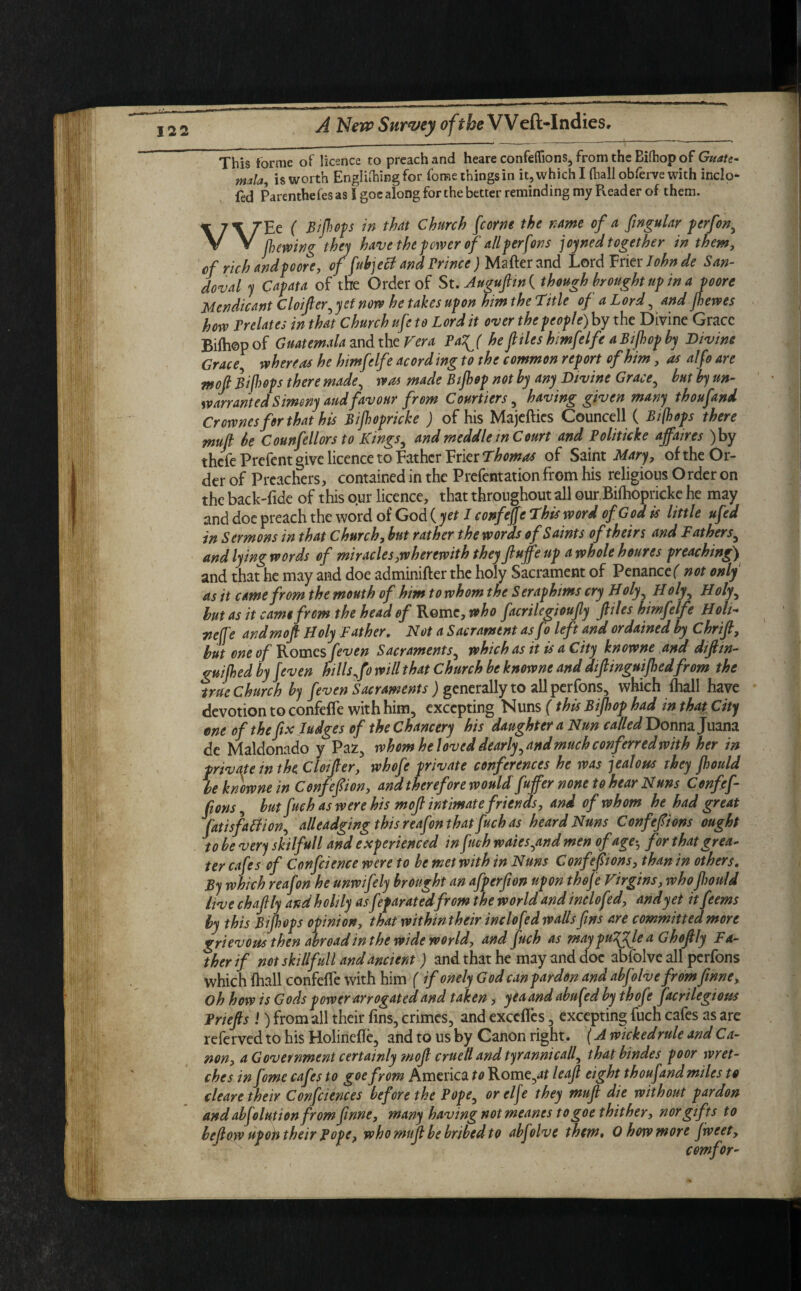 122 A New Survey of the VVest-Indies.
This forme of licence to preach and heare confessions, from the Bishop of Guate-
mala, is worth Englishing for some things in it, which I shall observe with inclo-
sed Parenthesesas I goe along for the better reminding my Reader of them.
VVEe ( Bishops in that Church scorne the name of a singular person,
shewing they have the power of all persons joyned together in them,
of rich and poore, of subject and Prince ) Master and Lord Frier Iohn de San-
doval y Capata of the Order of St. Augustin ( though brought up in a poore
Mendicant Cloister, yet now he takes upon him the Title of a Lord, and shewes
how Prelates in that Church use to Lord it over the people) by the Divine Grace
Bishop of Guatemala and the Vera Paz, ( he stiles himselfe a Bishop by Divine
Grace, whereas he himselfe acording to the common report of him, as also are
most Bishops there made, was made Bishop not by any Divine Grace, but by un-
warranted Simony and favour from Courtiers, having given many thousand
Crownes for that his Bishopricke ) of his Majesties Councell ( Bishops there
must be Counsellors to Kings, and meddle in Court and Politicke affaires ) by
these Present give licence to Father Frier Thomas of Saint Mary, of the Or-
der of Preachers, contained in the Presentation from his religious Order on
the back-side of this our licence, that throughout all our Bishopricke he may
and doe preach the word of God ( yet I confesse This word of God is little used
in Sermons in that Church, but rather the words of Saints of theirs and Fathers,
and lying words of miracles, wherewith they stuffe up a whole houres preaching)
and that he may and doe administer the holy Sacrament of Penance ( not only
as it came from the mouth of him to whom the Seraphims cry Holy, Holy, Holy,
but as it came from the head of Rome, who sacrilegiously stiles himselfe Holi-
nesse and most Holy Father. Not a Sacrament as so left and ordained by Christ,
but one of Romes seven Sacraments, which as it is a City knowne and distin-
guished by seven hills, so will that Church be knowne and distinguished from the
true Church by seven Sacraments ) generally to all persons, which shall have
devotion to confesse with him, excepting Nuns ( this Bishop had in that City
one of the six Iudges of the Chancery his daughter a Nun called Donna Juana
de Maldonado y Paz, whom he loved dearly, and much conferred with her in
private in the Cloister, whose private conferences he was jealous they should
be knowne in Confession, and therefore would suffer none to hear Nuns Confes-
sions, but such as were his most intimate friends, and of whom he had great
satisfaction, alleadging this reason that such as heard Nuns Confessions ought
to be very skilfull and experienced in such waies, and men of age; for that grea-
ter cases of Conscience were to be met with in Nuns Confessions, than in others.
By which reason he unwisely brought an aspersion upon those Virgins, who should
live chastly and holily as separated from the world and inclosed, and yet it seems
by this Bishops opinion, that within their inclosed walls sins are committed more
grievous then abroad in the wide world, and such as may puzzle a Ghostly Fa-
ther if not skillfull and ancient ) and that he may and doe absolve all persons
which shall confesse with him ( if onely God can pardon and absolve from sinne,
Oh how is Gods power arrogated and taken, yea and abused by those sacrilegious
Priests ! ) from all their sins, crimes, and excesses, excepting such cases as are
reserved to his Holinesse, and to us by Canon right. ( A wicked rule and Ca-
non, a Government certainly most cruell and tyrannicall, that bindes poor wret-
ches in some cases to goe from America to Rome, at least eight thousand miles to
cleare their Consciences before the Pope, or else they must die without pardon
and absolution from sinne, many having not meanes to goe thither, nor gifts to
bestow upon their Pope, who must be bribed to absolve them. O how more sweet,
comfor-